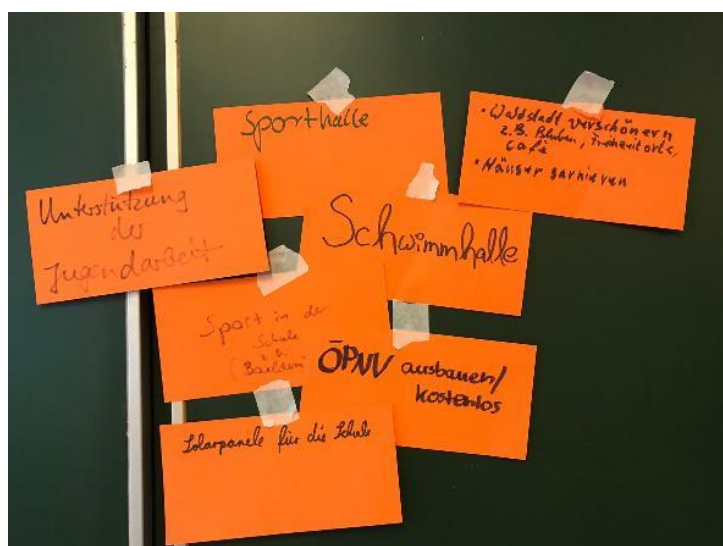 Sporthalle
• Waldstadt verschönern
z.B. Blumen, Freizeitorte,
Café
• Häuser sarnieren
Unterstützung
der
Jugendarbeit
Schwimmhalle
Sport in der
Schule
z.B.
ÖPNV ausbauen/
kostenlos
Solarpanele für die Schule